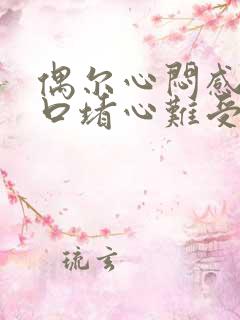 偶尔心悶感
口堵心難受
琉玄